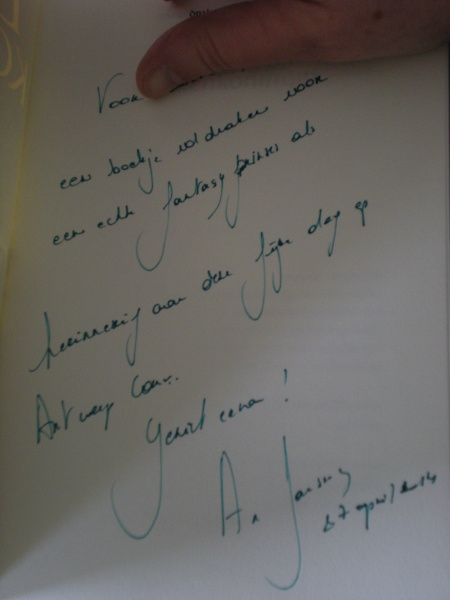 Voor
een boekje vol draken voor
een echte fantasy prinses als
herinnering aan deze fijne dag op
Antwerp Conv.
Geniet ervan!
An Janssens
27 april 2014